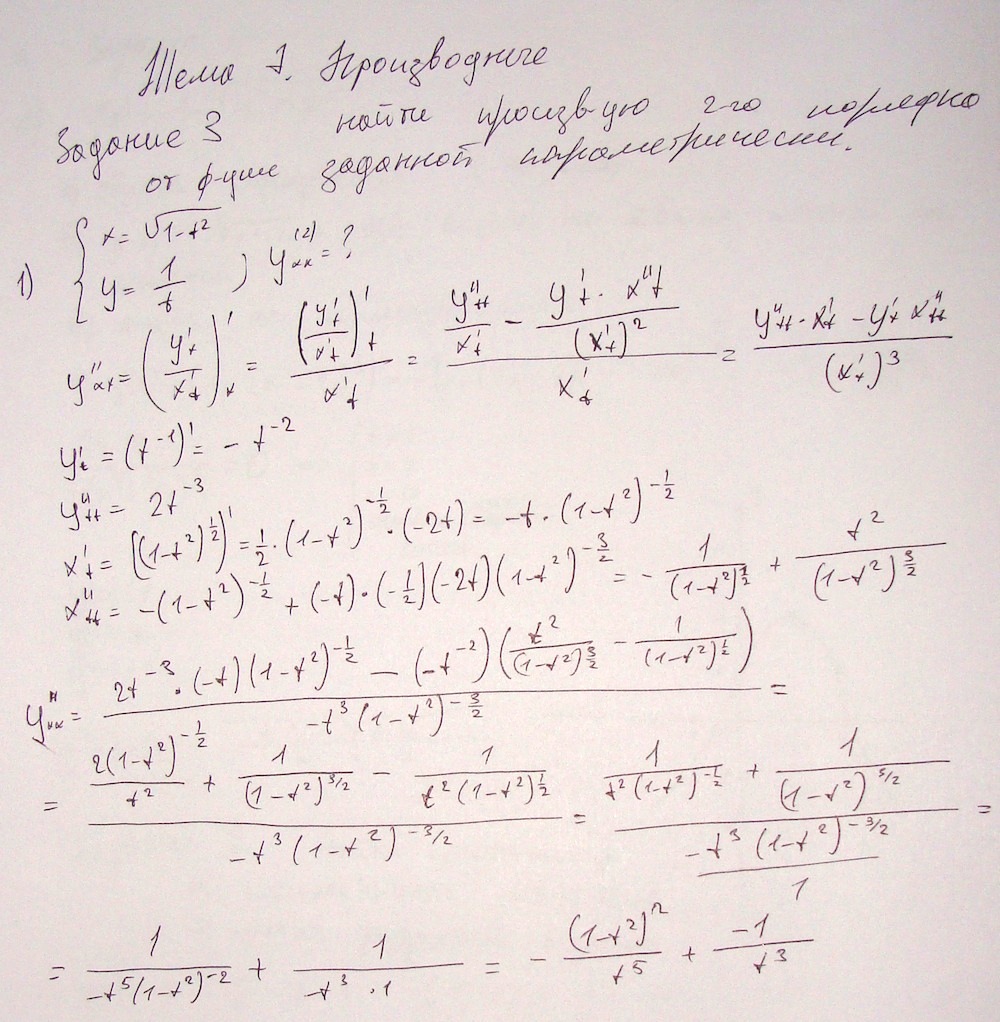 Тема 7. Производные
Задание 3 найти произв-ую 2-го порядка
от ф-ции заданной параметрически.
1) { x = √(1-t²) ; y = 1/t } ; y⁽²⁾ₓₓ = ?
y''ₓₓ = (y'ₜ/x'ₜ)'ₓ = (y'ₜ/x'ₜ)'ₜ / x'ₜ = (y''ₜₜ/x'ₜ - y'ₜ · x''ₜ/(x'ₜ)²) / x'ₜ = (y''ₜₜ · x'ₜ - y'ₜ x''ₜₜ)/(x'ₜ)³
y'ₜ = (t⁻¹)' = - t⁻²
y''ₜₜ = 2t⁻³
x'ₜ = [(1-t²)^(1/2)]' = 1/2 · (1-t²)^(-1/2) · (-2t) = -t · (1-t²)^(-1/2)
x''ₜₜ = -(1-t²)^(-1/2) + (-t) · (-1/2)(-2t)(1-t²)^(-3/2) = - 1/(1-t²)^(1/2) + t²/(1-t²)^(3/2)
y''ₓₓ = (2t⁻³ · (-t)(1-t²)^(-1/2) - (-t⁻²)(t²/(1-t²)^(3/2) - 1/(1-t²)^(1/2))) / (-t³(1-t²)^(-3/2)) =
= (2(1-t²)^(-1/2)/t² + 1/(1-t²)^(3/2) - 1/(t²(1-t²)^(1/2))) / (-t³(1-t²)^(-3/2)) = (1/(t²(1-t²)^(-1/2)) + 1/(1-t²)^(3/2)) / (-t³(1-t²)^(-3/2)/1) =
= 1/(-t⁵(1-t²)⁻²) + 1/(-t³ · 1) = - (1-t²)²/t⁵ + -1/t³